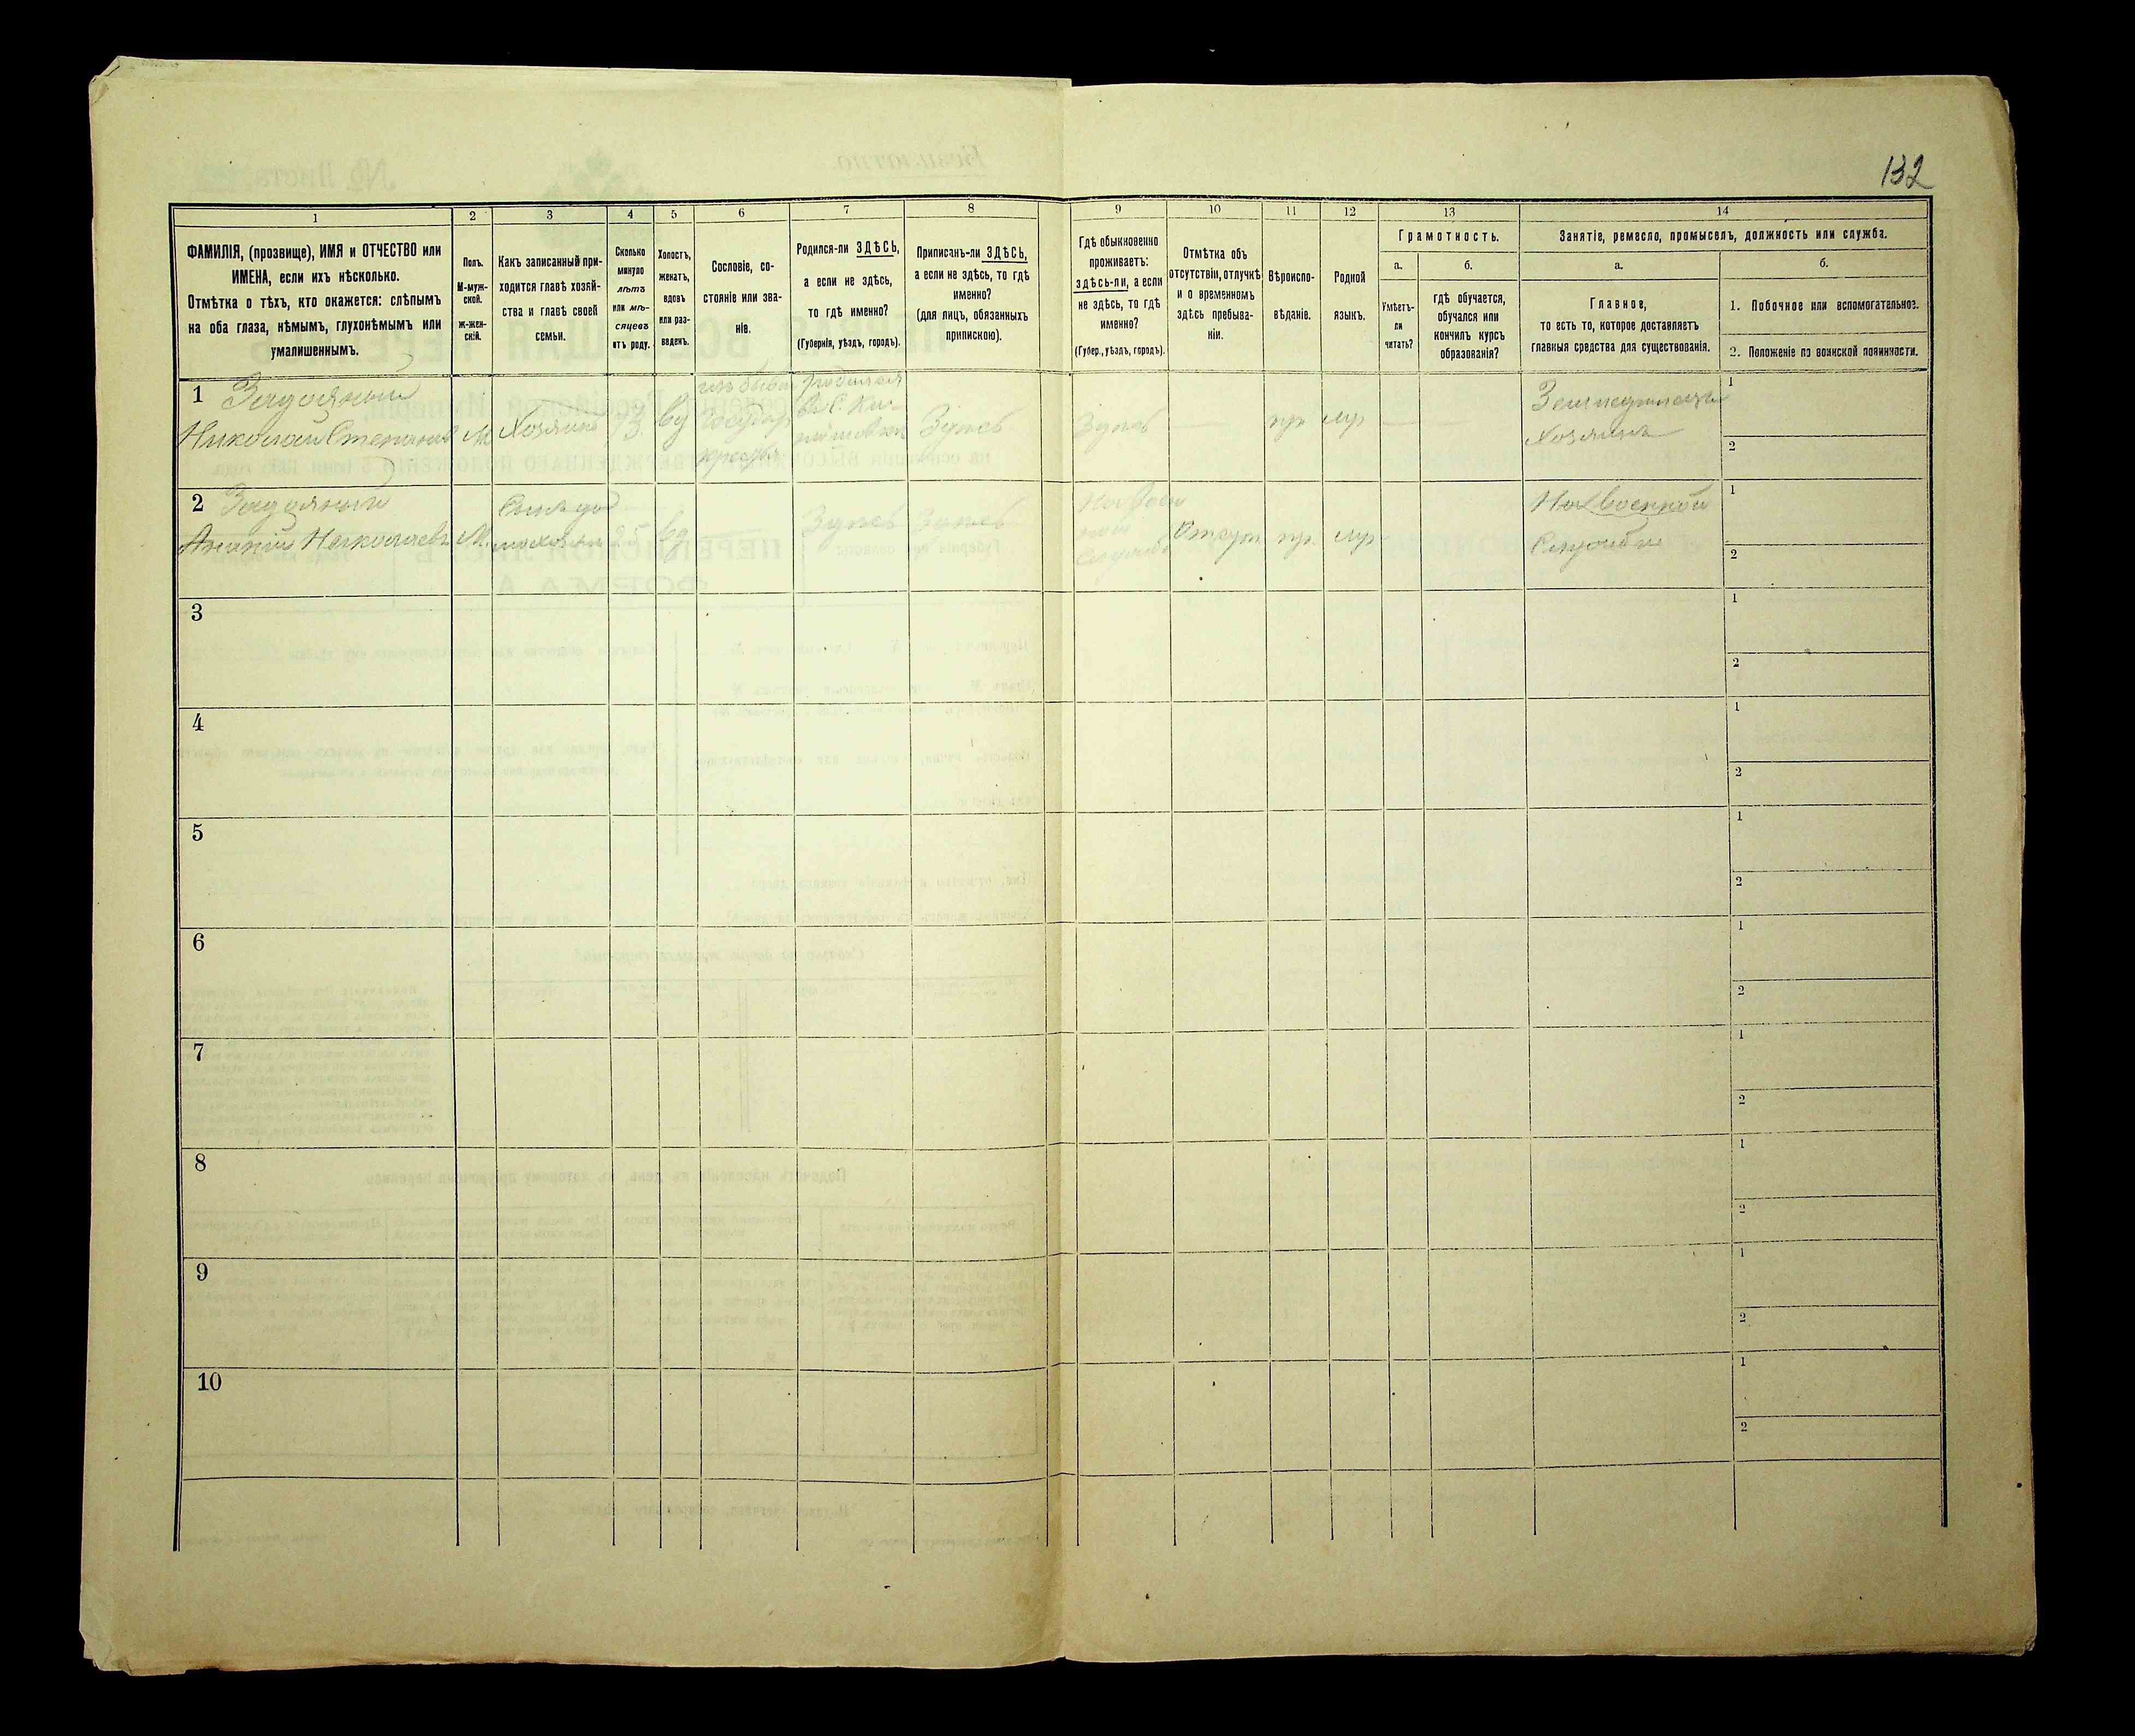 132
1
2
3
4
5
6
7
8
9
10
11
12
13
14
ФАМИЛІЯ, (прозвище), ИМЯ и ОТЧЕСТВО или
ИМЕНА, если ихъ нѣсколько.
Отмѣтка о тѣхъ, кто окажется: слѣпымъ
на оба глаза, нѣмымъ, глухонѣмымъ или
умалишеннымъ.
Полъ.
М-муж-
ской.
Ж-жен-
скій.
Какъ записанный при-
ходится главѣ хозяй-
ства и главѣ своей
семьи.
Сколько
минуло
лѣтъ
или мѣ-
сяцевъ
отъ роду.
Холостъ,
женатъ,
вдовъ
или раз-
веденъ.
Сословіе, со-
стояніе или зва-
ніе.
Родился-ли ЗДѢСЬ,
а если не здѣсь,
то гдѣ именно?
(Губернія, уѣздъ, городъ).
Приписанъ-ли ЗДѢСЬ,
а если не здѣсь, то гдѣ
именно?
(для лицъ, обязанныхъ
припискою).
Гдѣ обыкновенно
проживаетъ:
здѣсь-ли, а если
не здѣсь, то гдѣ
именно?
(Губер., уѣздъ, городъ).
Отмѣтка объ
отсутствіи, отлучкѣ
и о временномъ
здѣсь пребыва-
ніи.
Вѣроиспо-
вѣданіе.
Родной
языкъ.
Грамотность.
а.
Умѣетъ-
ли
читать?
б.
гдѣ обучается,
обучался или
кончилъ курсъ
образованія?
Занятіе, ремесло, промыселъ, должность или служба.
а.
Главное,
то есть то, которое доставляетъ
главныя средства для существованія.
б.
1. Побочное или вспомогательное.
2. Положеніе по воинской повинности.
1
Николай Степановъ
М
Хозяинъ
73
вд
Здѣсь
Здѣсь
пр
мр
Хозяинъ
1
2
2
Николаевъ
М.
25
вд
Здѣсь
Здѣсь
Отсут
пр.
мр
На военной
Службѣ
1
2
3
1
2
4
1
2
5
1
2
6
1
2
7
1
2
8
1
2
9
1
2
10
1
2